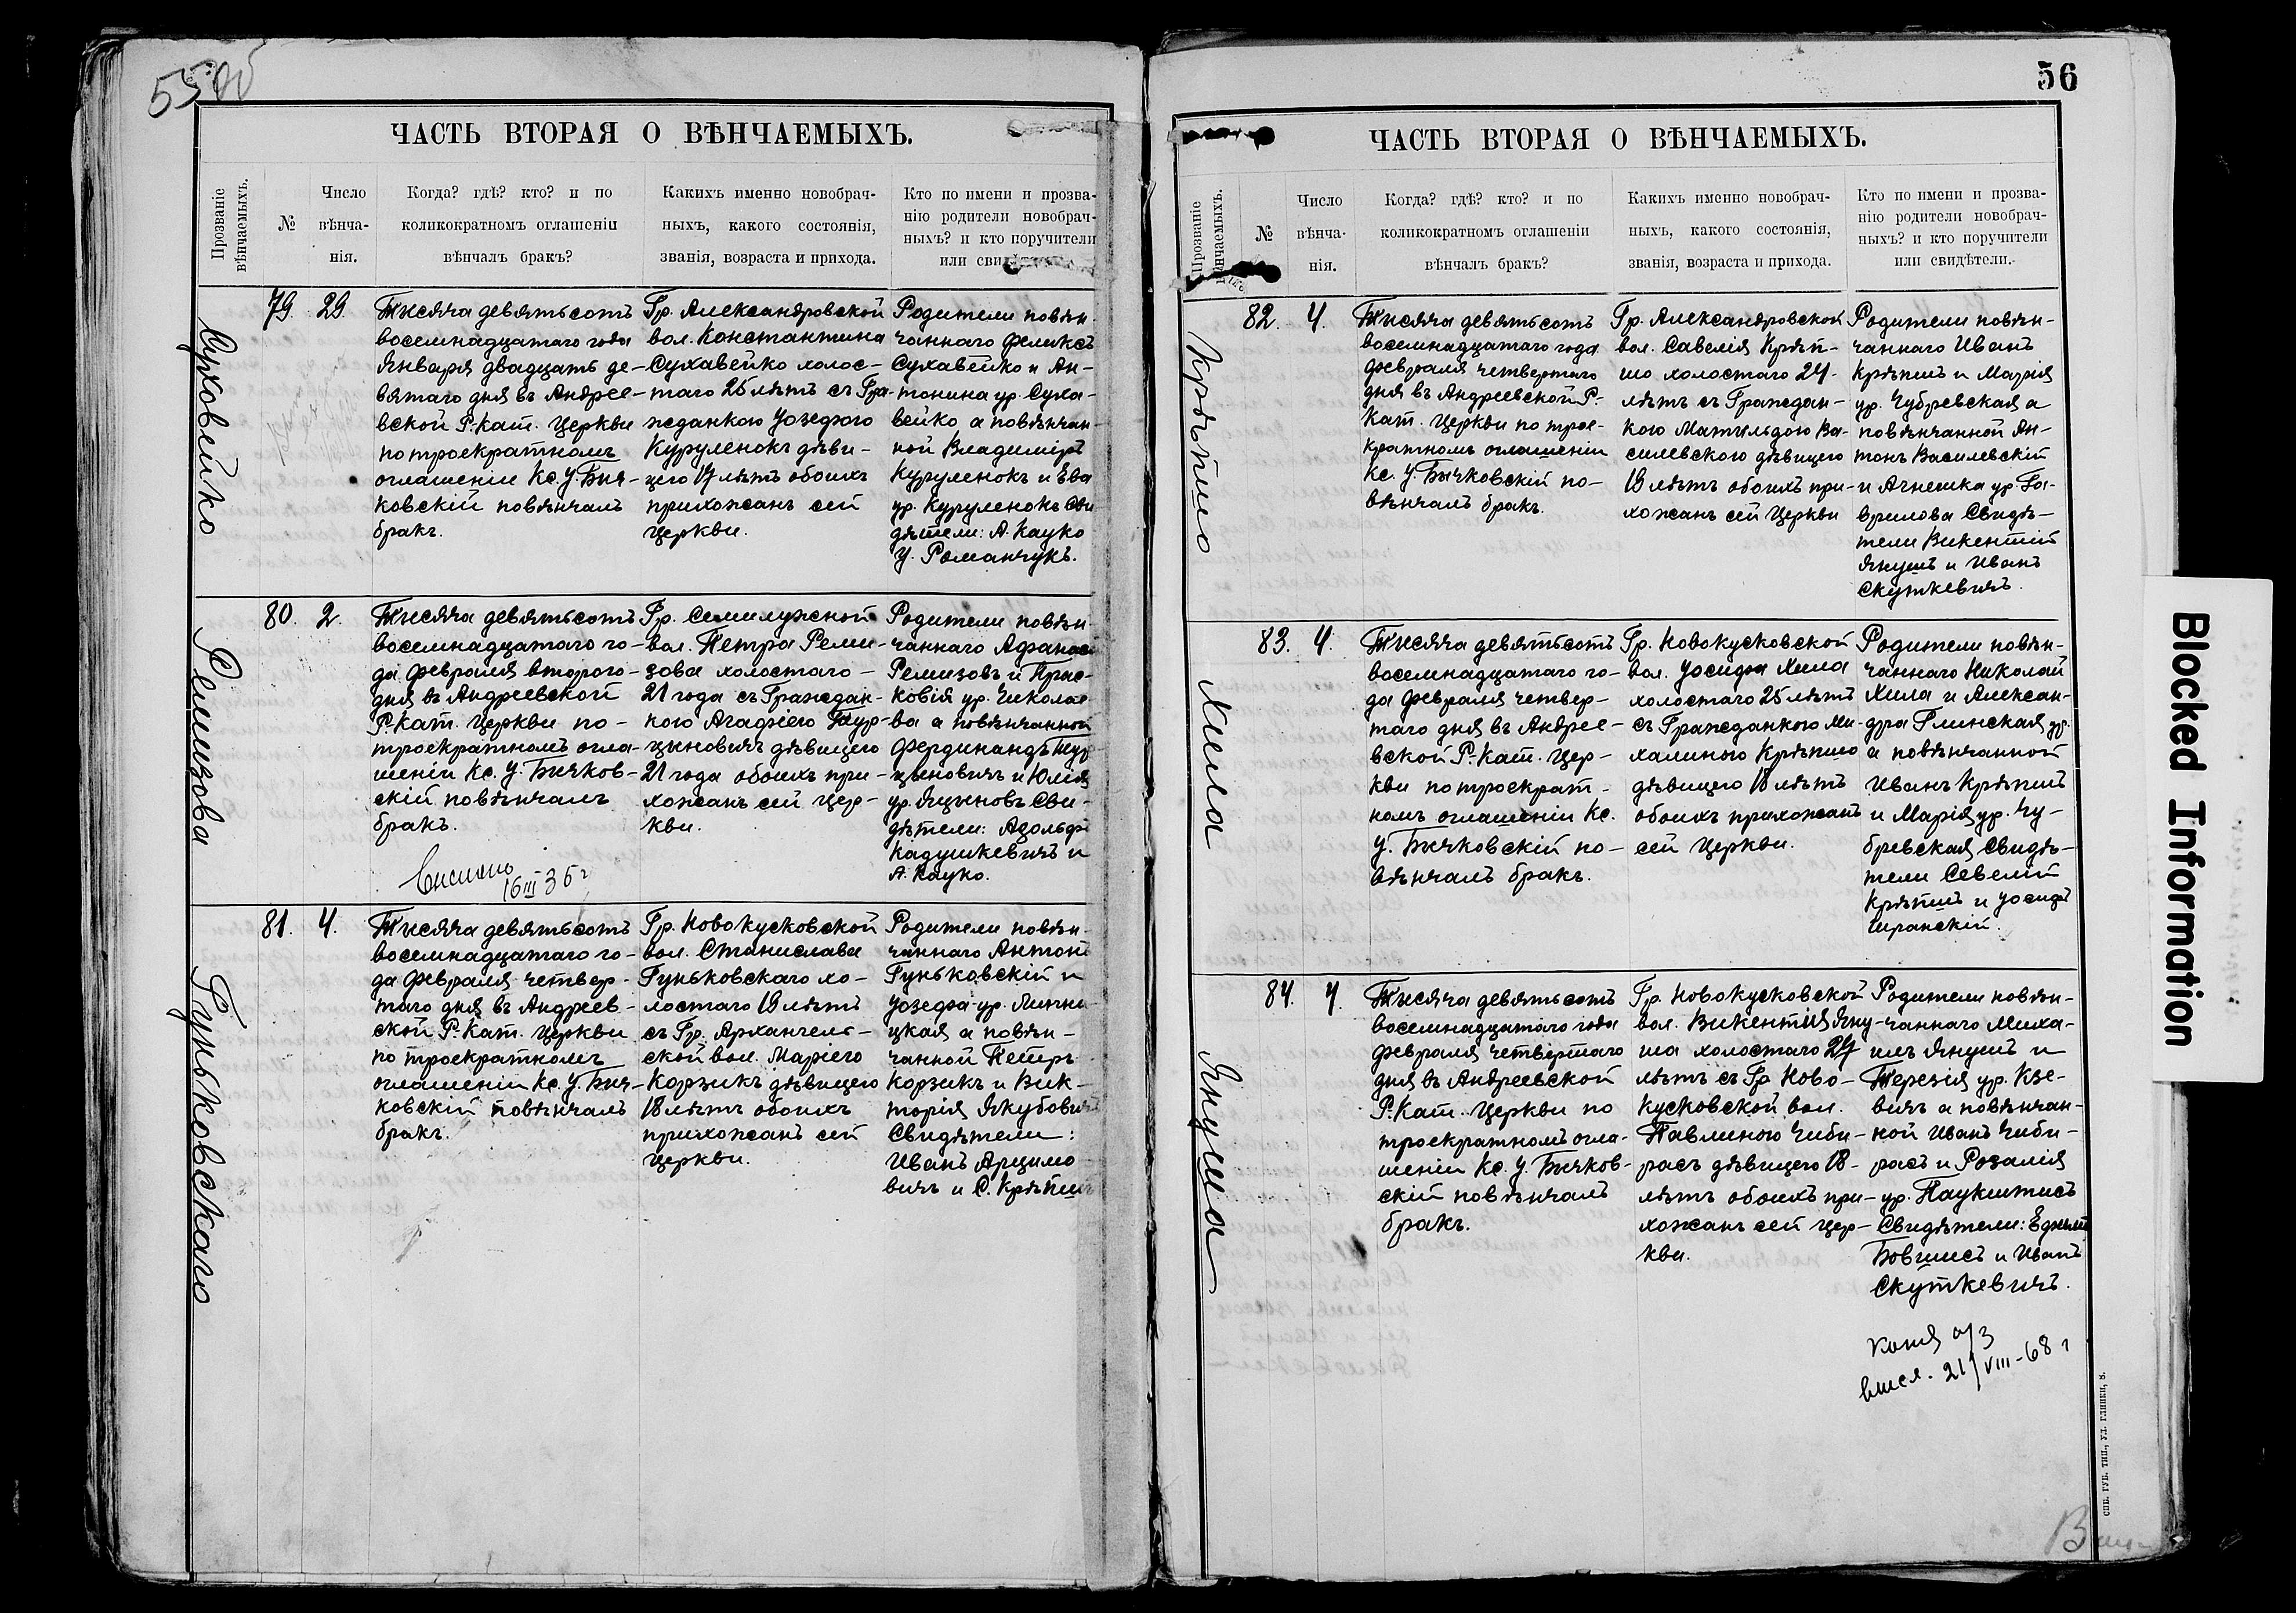 55об
ЧАСТЬ ВТОРАЯ О ВѢНЧАЕМЫХЪ.
Прозваніе
вѣнчаемыхъ.
№
Число
вѣнча-
нія.
Когда? гдѣ? кто? и по
коликократномъ оглашеніи
вѣнчалъ бракъ?
Какихъ именно новобрач-
ныхъ, какого состоянія,
званія, возраста и прихода.
Кто по имени и прозва-
нію родители новобрач-
ныхъ? и кто поручители
или
Суховейко
79. 29.
Тысяча девятьсотъ
восемнадцатаго года
Января двадцать де-
вятаго дня въ Андрее-
вской Р.Кат. Церкви
по троекратномъ
оглашеніи Кс. У. Быч-
ковскій повѣнчалъ
бракъ.
Гр. Александровской
вол. Константина
Сухавейко холос-
таго 25 лѣтъ съ Гра-
жданкою Уозефою
Куруленокъ дѣви-
цею 17 лѣтъ обоихъ
прихожанъ сей
Церкви.
Родители повѣн-
чаннаго Феликсъ
Сухавейко и Ан-
тонина ур. Суха-
вейко, а повѣнчан-
ной Владиміръ
Куруленокъ и Ева
ур. Куруленокъ Сви
дѣтели: А. Кауко
У. Романчукъ.
Ремизова
80. 2.
Тысяча девятьсотъ
восемнадцатаго го-
да февраля второго
дня въ Андреевской
Р.Кат. Церкви по-
троекратномъ огла-
шеніи Кс. У. Бычков-
скій повѣнчалъ
бракъ.
16 III 35 г
Гр. Семилужной
вол. Петра Реми-
зова холостаго
21 года съ Граждан-
кою Агафіею Тур-
цыновичъ дѣвицею
21 года обоихъ при-
хожанъ сей Цер-
кви.
Родители повѣн-
чаннаго Афанас
Ремизовъ и Прас-
ковія ур. Николае
ва а повѣнчанной
Фердинандъ Тур
цыновичъ и Юлія
ур. Яцыновъ Сви-
дѣтели: Адольфъ
Кадушкевичъ и
А. Кауко.
Гуньковскаго
81. 4.
Тысяча девятьсотъ
восемнадцатаго го-
да февраля четвер-
таго дня въ Андреев-
ской Р.Кат. Церкви
по троекратномъ
оглашеніи Кс. У. Быч-
ковскій повѣнчалъ
бракъ.
Гр. Новокусковской
вол. Станислава
Гуньковскаго хо-
лостаго 19 лѣтъ
съ Гр. Архангель-
ской вол. Маріею
Корзикъ дѣвицею
18 лѣтъ обоихъ
прихожанъ сей
Церкви.
Родители повѣн-
чаннаго Антонъ
Гуньковскій и
Уозефа ур. Липни
цкая а повѣн-
чанной Петръ
Корзикъ и Вик-
торія Якубович
Свидѣтели:
Иванъ Арцимо
вичъ и С. Крѣпш
56
ЧАСТЬ ВТОРАЯ О ВѢНЧАЕМЫХЪ.
Прозваніе
вѣнчаемыхъ.
№
Число
вѣнча-
нія.
Когда? гдѣ? кто? и по
коликократномъ оглашеніи
вѣнчалъ бракъ?
Какихъ именно новобрач-
ныхъ, какого состоянія,
званія, возраста и прихода.
Кто по имени и прозва-
нію родители новобрач-
ныхъ? и кто поручители
или свидѣтели.
Крѣпшо
82. 4.
Тысяча девятьсотъ
восемнадцатаго года
февраля четвертаго
дня въ Андреевской Р.
Кат. Церкви по трое-
кратномъ оглашеніи
Кс. У. Бычковскій по-
вѣнчалъ бракъ.
Гр. Александровской
вол. Савелія Крѣп-
шо холостаго 24-
лѣтъ съ Граждан-
кою Матильдою Ва-
силевского дѣвицею
19 лѣтъ обоихъ при-
хожанъ сей Церкви
Родители повѣн-
чаннаго Иванъ
Крѣпшъ и Марія
ур. Чубревская а
повѣнчанной Ан-
тонъ Василевскій
и Агнешка ур. Га-
врилова Свидѣ-
тели Викентій
Янушъ и Иванъ
Скуткевичъ.
Хила
83. 4.
Тысяча девятьсотъ
восемнадцатаго го-
да февраля четвер-
таго дня въ Андрее-
вской Р.Кат. Цер-
кви по троекрат-
номъ оглашеніи Кс.
У. Бычковскій по-
вѣнчалъ бракъ.
Гр. Новокусковской
вол. Уосифа Хила
холостаго 25 лѣтъ
съ Гражданкою Ми-
халиною Крѣпшо
дѣвицею 18 лѣтъ
обоихъ прихожанъ
сей Церкви.
Родители повѣн-
чаннаго Николай
Хила и Алексан-
дра Глинская ур.
а повѣнчанной
Иванъ Крѣпшъ
и Марія ур. Чу-
бревская Свидѣ-
тели Севелій
Крѣпшъ и Уосифъ
Шранскій.
Януша
84. 4.
Тысяча девятьсотъ
восемнадцатаго года
февраля четвертаго
дня въ Андреевской
Р.Кат. Церкви по
троекратномъ огла-
шеніи Кс. У. Бычков-
скій повѣнчалъ
бракъ.
Гр. Новокусковской
вол. Викентія Яну-
ша холостаго 27
лѣтъ съ Гр. Ново-
кусковской вол.
Павлиною Чиби-
расъ дѣвицею 18-
лѣтъ обоихъ при-
хожанъ сей Цер-
кви.
Родители повѣн-
чаннаго Миха-
илъ Янушъ и
Терезія ур. Кзе-
вичъ а повѣнчан-
ной Иванъ Чиби-
расъ и Розалія
ур. Паукштисъ
Свидѣтели:
Бовшисъ и Иванъ
Скуткевичъ.
копия а/з
высл. 21/VIII-68 г
СПБ. ГУБ. ТИП., УЛ. ГЛИНКИ, 8.
Blocked Information